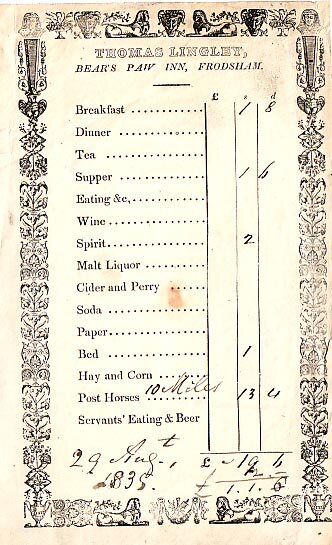 THOMAS LINGLEY,
BEAR'S PAW INN, FRODSHAM.
£ s d
Breakfast ........... 1 8
Dinner ...........
Tea ...........
Supper ........... 1 6
Eating &c, ...........
Wine ...........
Spirit ........... 2
Malt Liquor ...........
Cider and Perry ......
Soda ...........
Paper ...........
Bed ........... 1
Hay and Corn ......
Post Horses 10 Miles 13 4
Servants' Eating & Beer
29 Augt, £ ~ 19 6
1835. £ 1.1.6